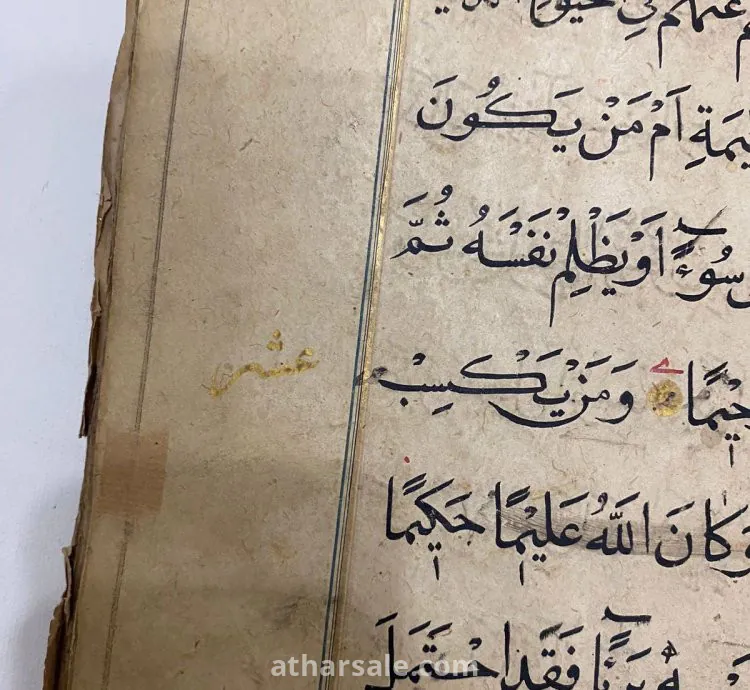 يمَةِ اَمْ مَنْ يَكُونُ
سُوءًا اَوْ يَظْلِمْ نَفْسَهُ ثُمَّ
حِيمًا وَمَنْ يَكْسِبْ
عشر
وَكَانَ اللّٰهُ عَلِيْمًا حَكِيمًا
بَرِئًا فَقَدِ احْتَمَلَ
atharsale.com